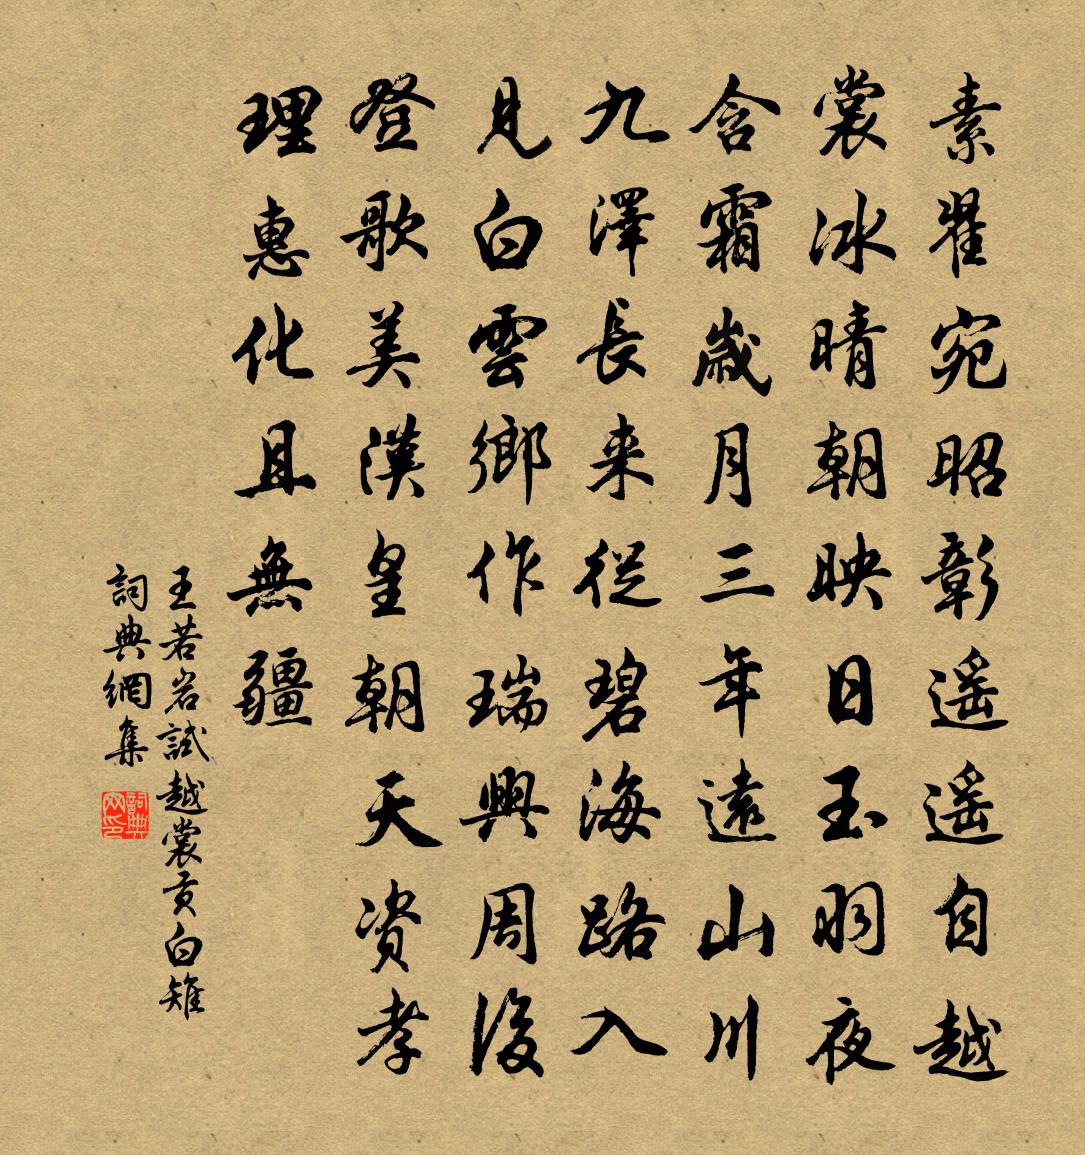 素翟宛昭彰遥遥自越
裳冰晴朝映日玉羽夜
含霜歲月三年遠山川
九澤長来從碧海路入
見白雲鄉作瑞興周後
登歌美漢皇朝天資孝
理惠化且無疆
王若岩試越裳貢白雉
詞典網集
詞典网印